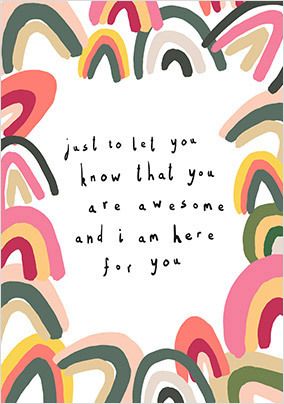 just to let you
know that you
are awesome
and i am here
for you